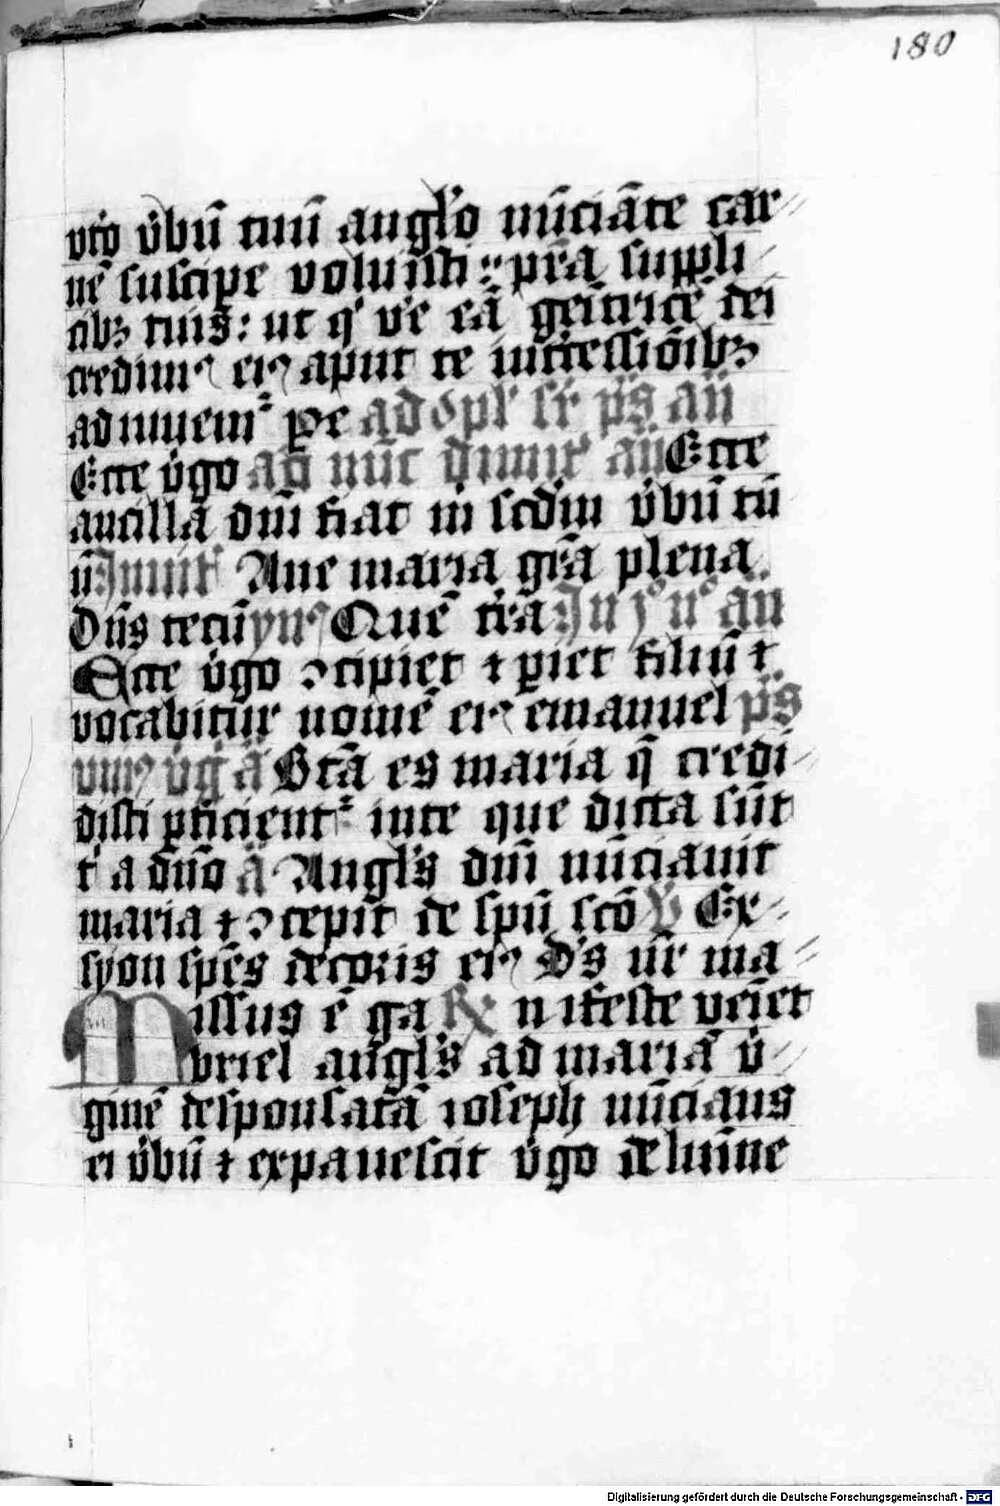 180
vtō v̄bū tuū angl̓o nūciāte car
nē suscipe voluisti : pr̄a suppli
cibꝫ tuis : ut q̓ ve̓ eā geītricē dei
credimꝰ eiꝰ aput te īntercessiōibꝫ
adiuuemur ꝑ
Ecce v̓go ad nūc dimit̓ añ Ecce
ancilla dn̄i fiat m̓ scdm v̓bū tu
ū Inuit̓ Aue maria gr̄a plena
Dn̄s tecū ymꝰ Quē tr̄a In añ
Ecce v̓go ꝯcipiet ⁊ ꝑiet filiū ⁊
vocabitur nomē eiꝰ emanuel p̄s
Bt̄a es maria q̄ credi
disti ꝑficient̓ in te que dicta sūt
t̓ a dn̄o ā Angl̓s dn̄i nūciauit
maria ⁊ ꝯcepit de spū scō v̓ Ex
syon spēs decoris eiꝰ D̓s nr̄ ma
issus ē ga ℟ nifeste veīet
Mbriel angl̓s ad mariā v̓
ginē desponsatā ioseph nūcians
ei v̓bū ⁊ expauescit v̓go de lumīne
Digitalisierung gefördert durch die Deutsche Forschungsgemeinschaft - DFG